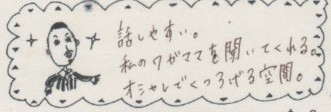 話しやすい。
私のワガママを聞いてくれる。
オシャレでくつろげる空間。